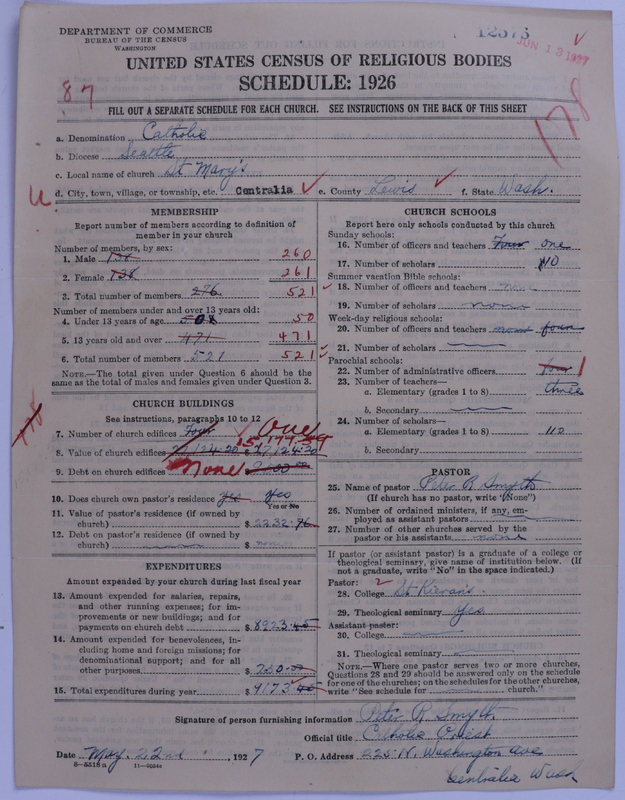 DEPARTMENT OF COMMERCE
BUREAU OF THE CENSUS
WASHINGTON
12375
JUN 13 1927
UNITED STATES CENSUS OF RELIGIOUS BODIES
SCHEDULE: 1926
87
178
FILL OUT A SEPARATE SCHEDULE FOR EACH CHURCH. SEE INSTRUCTIONS ON THE BACK OF THIS SHEET
a. Denomination Catholic
b. Diocese Seattle
c. Local name of church St. Mary's
U d. City, town, village, or township, etc. Centralia e. County Lewis f. State Wash.
MEMBERSHIP
Report number of members according to definition of member in your church
Number of members, by sex:
1. Male 138 260
2. Female 138 261
3. Total number of members 276 521
Number of members under and over 13 years old:
4. Under 13 years of age 50 50
5. 13 years old and over 471 471
6. Total number of members 521 521
NOTE.—The total given under Question 6 should be the
same as the total of males and females given under Question 3.
CHURCH BUILDINGS
See instructions, paragraphs 10 to 12
7. Number of church edifices Four One
8. Value of church edifices $
9. Debt on church edifices None $
10. Does church own pastor's residence yes yes
Yes or No
11. Value of pastor's residence (if owned by
church) $ 2232.96
12. Debt on pastor's residence (if owned by
church) $
EXPENDITURES
Amount expended by your church during last fiscal year
13. Amount expended for salaries, repairs,
and other running expenses; for im-
provements or new buildings; and for
payments on church debt $ 8923.45
14. Amount expended for benevolences, in-
cluding home and foreign missions; for
denominational support; and for all
other purposes $ 250.00
15. Total expenditures during year $ 9173.45
CHURCH SCHOOLS
Report here only schools conducted by this church
Sunday schools:
16. Number of officers and teachers Four one
17. Number of scholars 110
Summer vacation Bible schools:
18. Number of officers and teachers
19. Number of scholars none
Week-day religious schools:
20. Number of officers and teachers none four
21. Number of scholars
Parochial schools:
22. Number of administrative officers four 1
23. Number of teachers—
a. Elementary (grades 1 to 8) three
b. Secondary
24. Number of scholars—
a. Elementary (grades 1 to 8) 112
b. Secondary
PASTOR
25. Name of pastor Peter R Smyth
(If church has no pastor, write "None")
26. Number of ordained ministers, if any, em-
ployed as assistant pastors
27. Number of other churches served by the
pastor or his assistants none
If pastor (or assistant pastor) is a graduate of a college or
theological seminary, give name of institution below. (If
not a graduate, write "No" in the space indicated.)
Pastor:
28. College St Kieran's
29. Theological seminary Yes
Assistant pastor:
30. College
31. Theological seminary
NOTE.—Where one pastor serves two or more churches,
Questions 28 and 29 should be answered only on the schedule
for one of the churches; on the schedules for the other churches,
write "See schedule for church."
Signature of person furnishing information Peter R Smyth
Official title Catholic Priest
Date May 22nd, 1927 P. O. Address 225 N. Washington Ave
8—5518a 11—5054 Centralia Wash